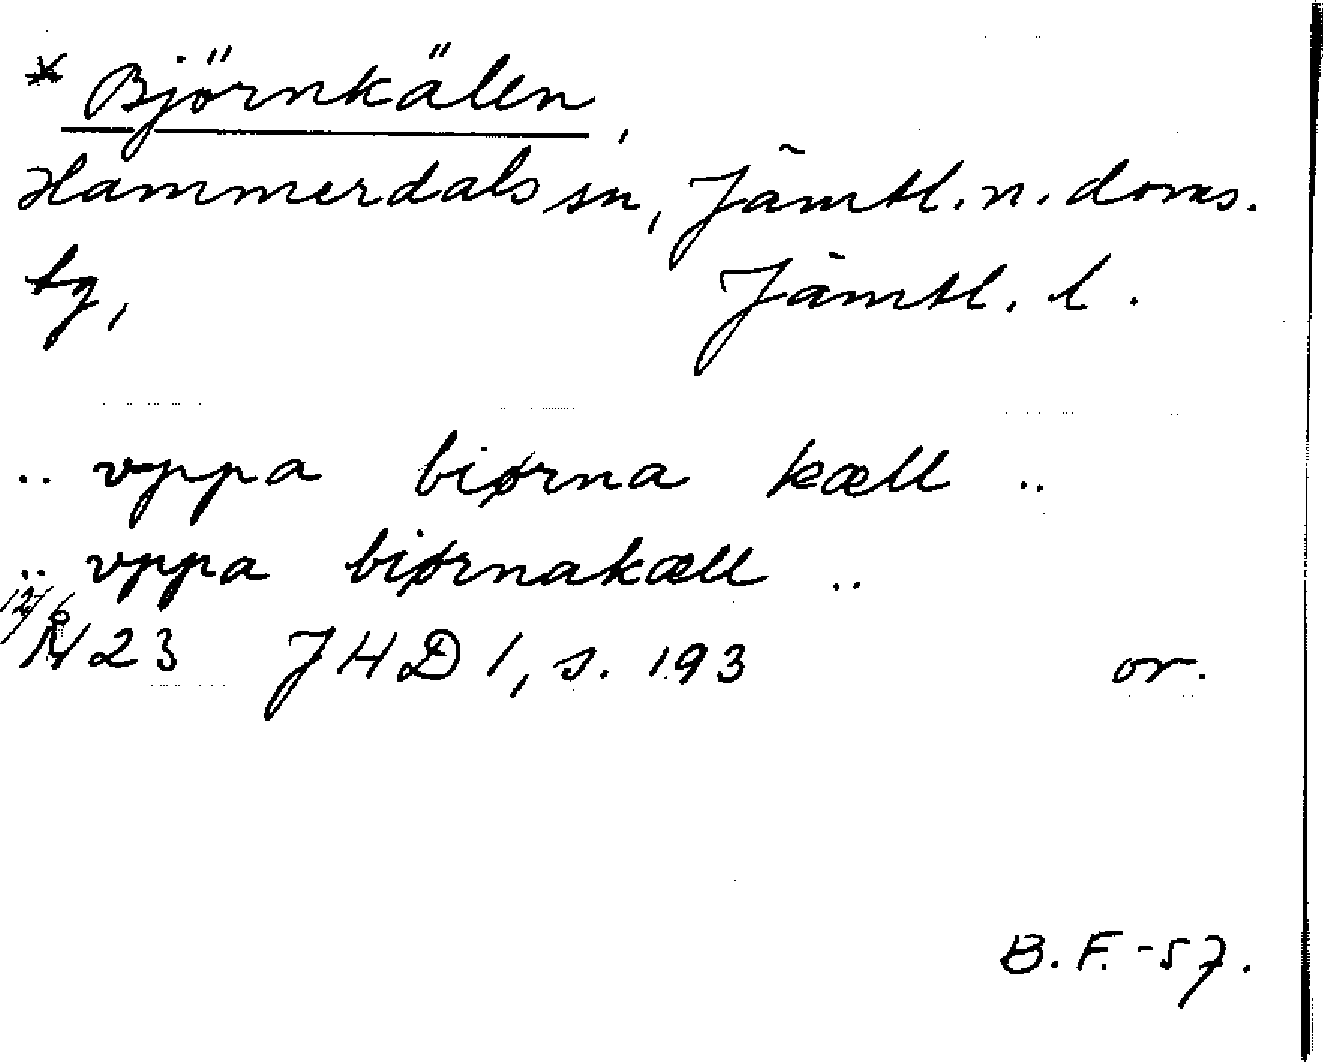 * Björnkälen,
Hammerdals sn, Jämtl. n. doms.
tg, Jämtl. l.
.. vppa biørna kæll ..
.. vppa biørnakæll ..
12/6 1423 JHD 1, s. 193 or.
B. F. -57.